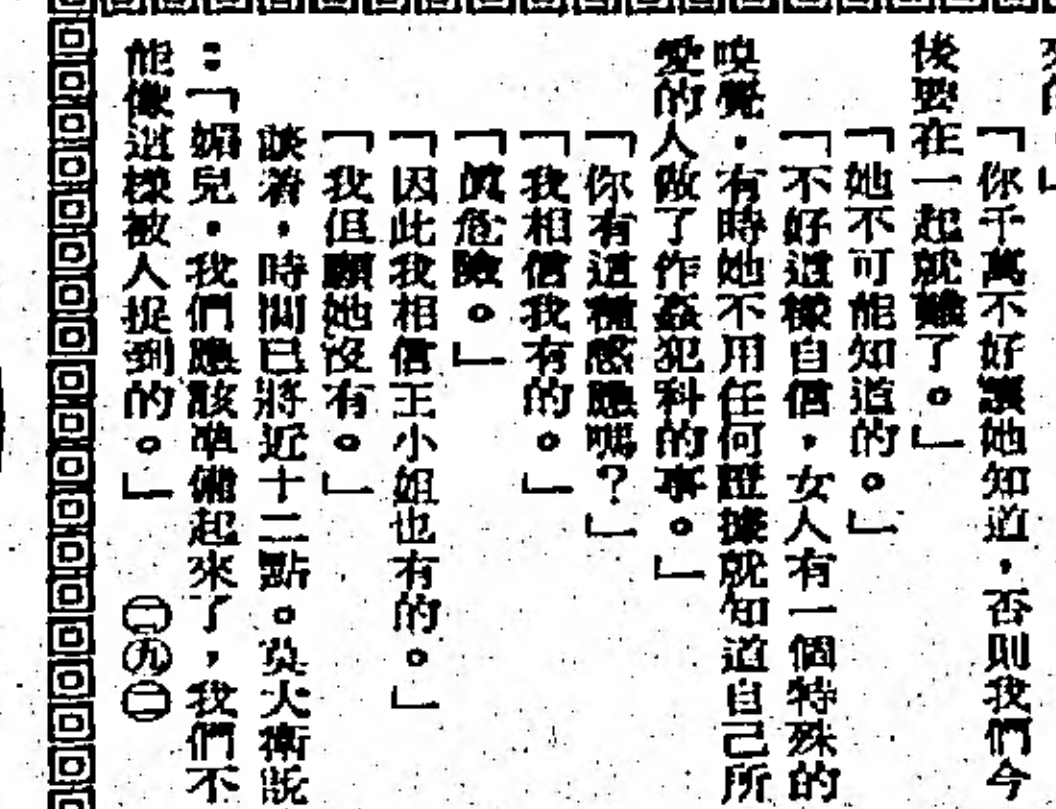 的。」
「你千萬不好讓她知道，否則我們今
後要在一起就難了。」
「她不可能知道的。」
「不好這樣自信，女人有一個特殊的
嗅覺，有時她不用任何證據就知道自己所
愛的人做了作姦犯科的事。」
「你有這種感應嗎？」
「我相信我有的。」
「眞危險。」
「因此我相信王小姐也有的。」
「我但願她沒有。」
談着，時間已將近十二點。吳大衛說
：「媚兒，我們應該準備起來了，我們不
能像這樣被人捉到的。」　㊁㊈㊁